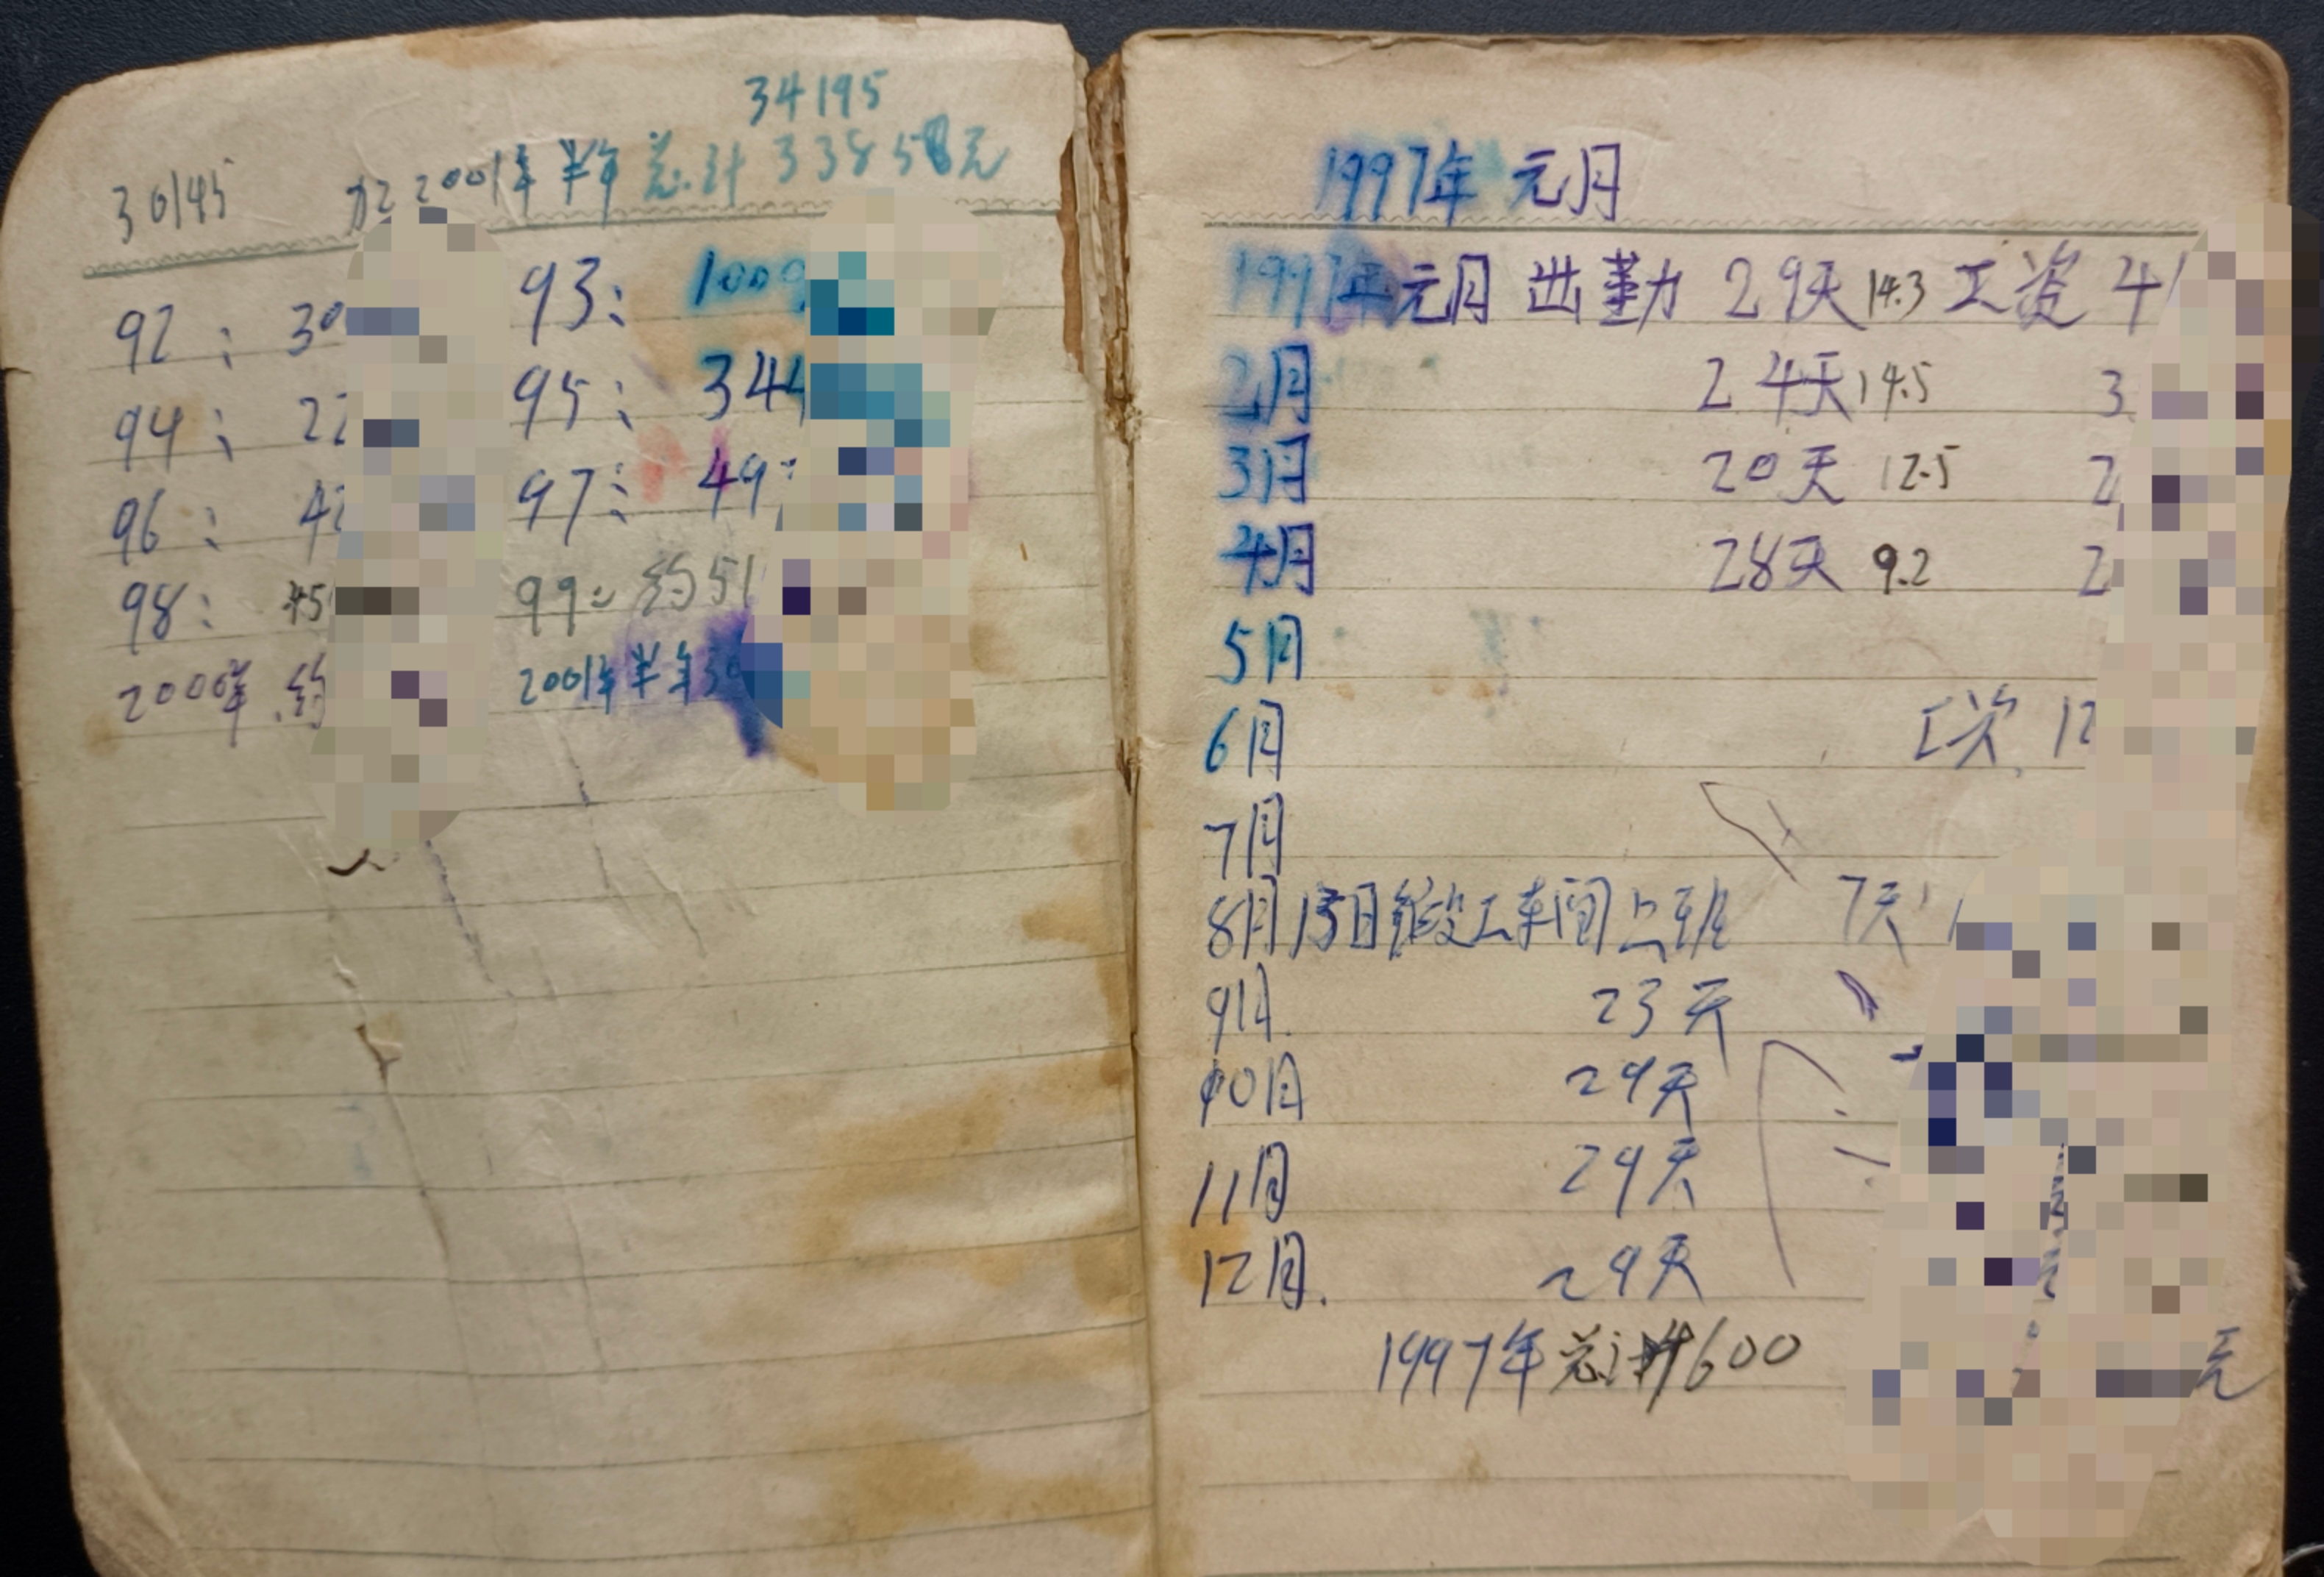 34195
30145 加2001年半年总计33858元
92: 30 93: 1009
94: 22 95: 344
96: 42 97: 49
98: 45 99: 约51
2000年 约 2001年半年30
1997年 元月
1997年元月 出勤 29天 14.3 工资 41
2月 24天 14.5 3
3月 20天 12.5 2
4月 28天 9.2 2
5月
6月 工资 12
7月
8月15日 工车间上班 7天
9月 23天
10月 29天
11月 29天
12月. 29天
1997年总计600 元